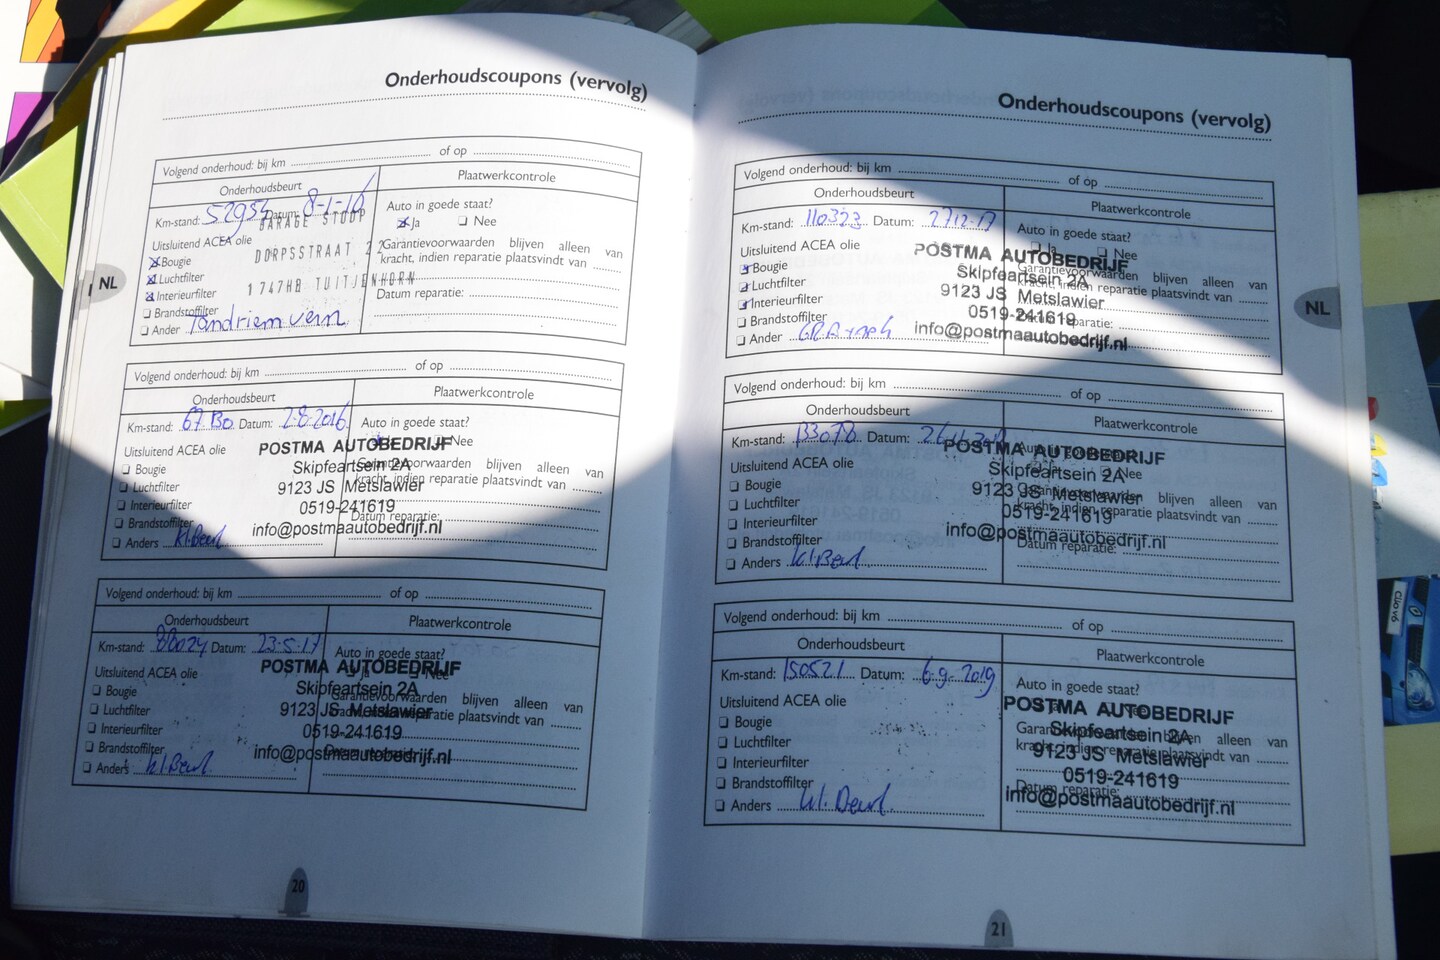 Onderhoudscoupons (vervolg)
Volgend onderhoud: bij km of op
Onderhoudsbeurt
Plaatwerkcontrole
Km-stand: 52954 Datum: 8-1-16
Auto in goede staat?
Ja Nee
GARAGE STOOP
DORPSSTRAAT 22
1747HB TUITJENHORN
Uitsluitend ACEA olie
Bougie
Luchtfilter
Interieurfilter
Brandstoffilter
Ander Tandriem vern
Garantievoorwaarden blijven alleen van
kracht, indien reparatie plaatsvindt van
Datum reparatie:
NL
Volgend onderhoud: bij km of op
Onderhoudsbeurt
Plaatwerkcontrole
Km-stand: Datum: 2-8-2016
Auto in goede staat?
Nee
Uitsluitend ACEA olie
Bougie
Luchtfilter
Interieurfilter
Brandstoffilter
Anders kl.Beurt
POSTMA AUTOBEDRIJF
Skipfeartsein 2A
9123 JS Metslawier
0519-241619
info@postmaautobedrijf.nl
Garantievoorwaarden blijven alleen van
kracht, indien reparatie plaatsvindt van
Datum reparatie:
Volgend onderhoud: bij km of op
Onderhoudsbeurt
Plaatwerkcontrole
Km-stand: 88024 Datum: 23-5-17
Auto in goede staat?
Ja Nee
Uitsluitend ACEA olie
Bougie
Luchtfilter
Interieurfilter
Brandstoffilter
Anders kl.Beurt
POSTMA AUTOBEDRIJF
Skipfeartsein 2A
9123 JS Metslawier
0519-241619
info@postmaautobedrijf.nl
Garantievoorwaarden blijven alleen van
kracht, indien reparatie plaatsvindt van
Datum reparatie:
20
Onderhoudscoupons (vervolg)
Volgend onderhoud: bij km of op
Onderhoudsbeurt
Plaatwerkcontrole
Km-stand: 110323 Datum: 27-12-17
Auto in goede staat?
Ja Nee
Uitsluitend ACEA olie
Bougie
Luchtfilter
Interieurfilter
Brandstoffilter
Ander
POSTMA AUTOBEDRIJF
Skipfeartsein 2A
9123 JS Metslawier
0519-241619
info@postmaautobedrijf.nl
Garantievoorwaarden blijven alleen van
kracht, indien reparatie plaatsvindt van
Datum reparatie:
NL
Volgend onderhoud: bij km of op
Onderhoudsbeurt
Plaatwerkcontrole
Km-stand: 133078 Datum:
Auto in goede staat?
Nee
Uitsluitend ACEA olie
Bougie
Luchtfilter
Interieurfilter
Brandstoffilter
Anders kl.Beurt
POSTMA AUTOBEDRIJF
Skipfeartsein 2A
9123 JS Metslawier
0519-241619
info@postmaautobedrijf.nl
Garantievoorwaarden blijven alleen van
kracht, indien reparatie plaatsvindt van
Datum reparatie:
Volgend onderhoud: bij km of op
Onderhoudsbeurt
Plaatwerkcontrole
Km-stand: 150521 Datum: 6-9-2019
Auto in goede staat?
Uitsluitend ACEA olie
Bougie
Luchtfilter
Interieurfilter
Brandstoffilter
Anders kl.Beurt
POSTMA AUTOBEDRIJF
Skipfeartsein 2A
9123 JS Metslawier
0519-241619
info@postmaautobedrijf.nl
Garantievoorwaarden blijven alleen van
kracht, indien reparatie plaatsvindt van
Datum reparatie:
21
Clio V6